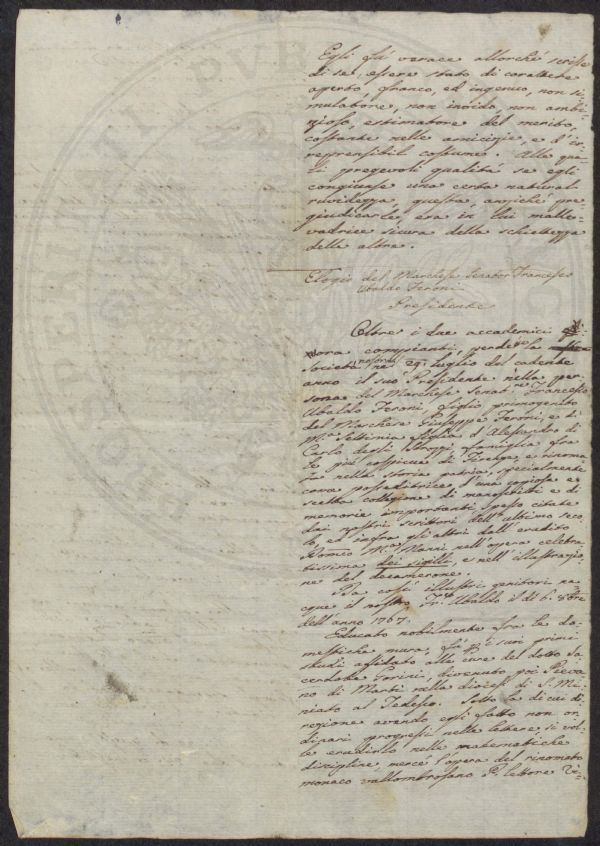 Egli fù verace allorché scisse
di se, essere stato di carattere
aperto, franco, ed ingenuo, non si-
mulatore, non invido, non ambi-
zioso, estimatore del merito,
costante nelle amicizie, e d'ir-
reprensibil costume. Alle qua-
li pregevoli qualità se egli
congiunse una certa natural
ruvidezza, questa, anziché pre-
giudicarle, era in lui malle-
vadrice sicura della schiettezza
delle altre.
Elogio del Marchese Senator Francesco
Ubaldo Feroni
Presidente
Oltre i due accademici
ora compianti, perdè la
Società nostra ne' 29. luglio del cadente
anno il suo Presidente nella per-
sona del Marchese Senat.re Francesco
Ubaldo Feroni, figlio primogenito
del Marchese Giuseppe Feroni, e di
M.a Settimia figlia d'Alessandro di
Carlo degli Strozzi, famiglia fra
le più cospicue di Firenze, e rinoma-
ta nella storia patria, specialmente
come posseditrice d'una copiosa e
scelta collezione di manoscritti e di
memorie importanti spesso citate
dai nostri scrittori dell'ultimo seco-
lo, ed infra gli altri dall'erudito
M.a Manni nell'opera celebra-
tissima dei sigilli, e nell'illustrazio-
ne del decamerone.
Da così illustri genitori na-
cque il nostro Fr. Ubaldo il dì 6. 8bre
dell'anno 1767.
Educato nobilmente fra le do-
mestiche mura, fù suoi primi
studi affidato alle cure del dotto Sa-
cerdote Torini, divenuto poi Pieva-
no di Marti nella diocesi di S. Mi-
niato al Tedesco. Sotto la di cui di-
rezione avendo egli fatto non or-
dinari progressi nelle lettere, si vol-
le erudirlo nelle matematiche
discipline mercè l'opera del rinomato
monaco vallombrosano P. lettore